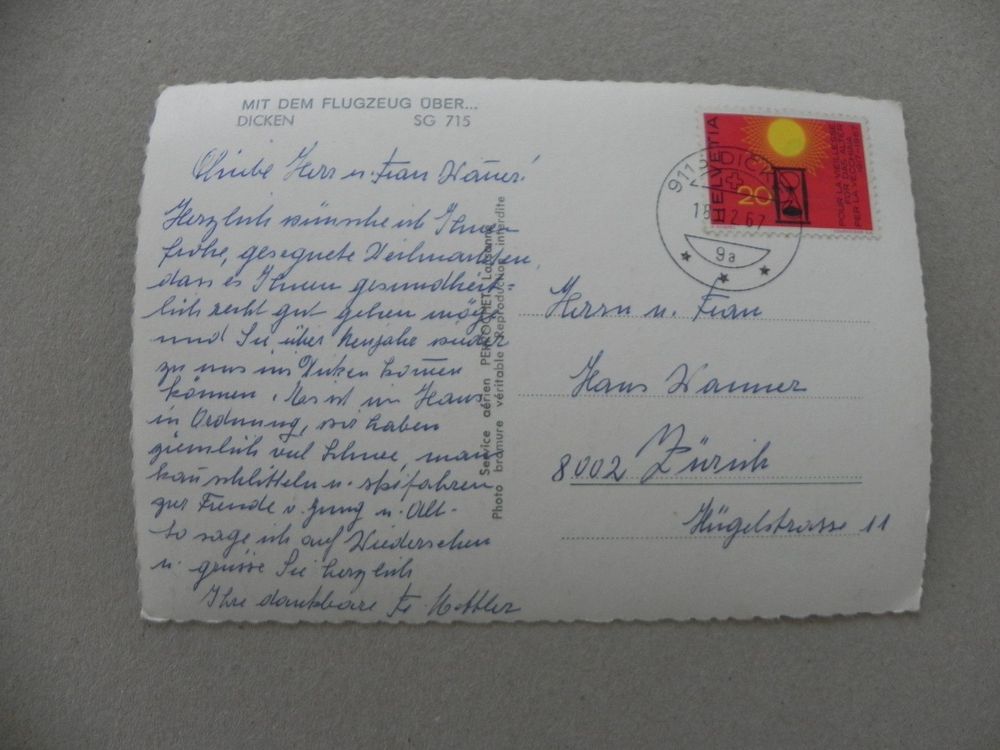 MIT DEM FLUGZEUG ÜBER...
DICKEN SG 715
Herr u. Frau Wanner!
Herzlich wünsche ich Ihnen
frohe, gesegnete Weihnachten,
dass es Ihnen gesundheit-
lich recht gut gehen möge
und Sie über Neujahr wieder
zu uns in Dicken kommen
können. Es ist im Haus
in Ordnung, wir haben
ziemlich viel Schnee, man
kann schlitteln u. skifahren
zur Freude v. Jung u. Alt.
So sage ich auf Wiedersehen
u. grüsse Sie herzlich
Ihre dankbare Fr. Mettler
Photo Service aérien PERROCHET Lausanne
véritable bromure Reproduction interdite
HELVETIA
20
POUR LA VIEILLESSE
FÜR DAS ALTER
PER LA VECCHIAIA
9115 DICKEN
18.12.67
9a
Herrn u. Frau
Hans Wanner
8002 Zürich
Hügelstrasse 11